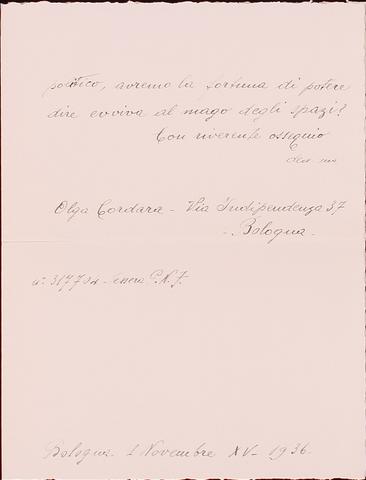 politico, avremo la fortuna di potere
dire evviva al mago degli spazi?
Con riverente ossequio
Olga Cordara - Via Indipendenza 37
- Bologna -
n° 317704 - Tessera P.N.F.
Bologna - 1 Novembre XV - 1936